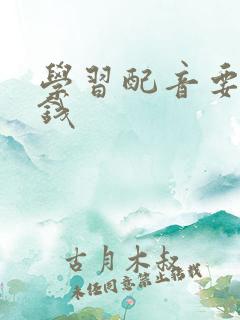 學習配音要
錢
古月木叔
未经同意禁止转载